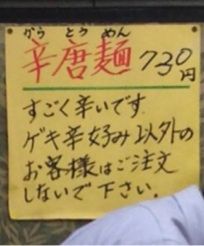 から とう めん
辛唐麺 730円
すごく辛いです。
ゲキ辛好み以外の
お客様はご注文
しないで下さい。